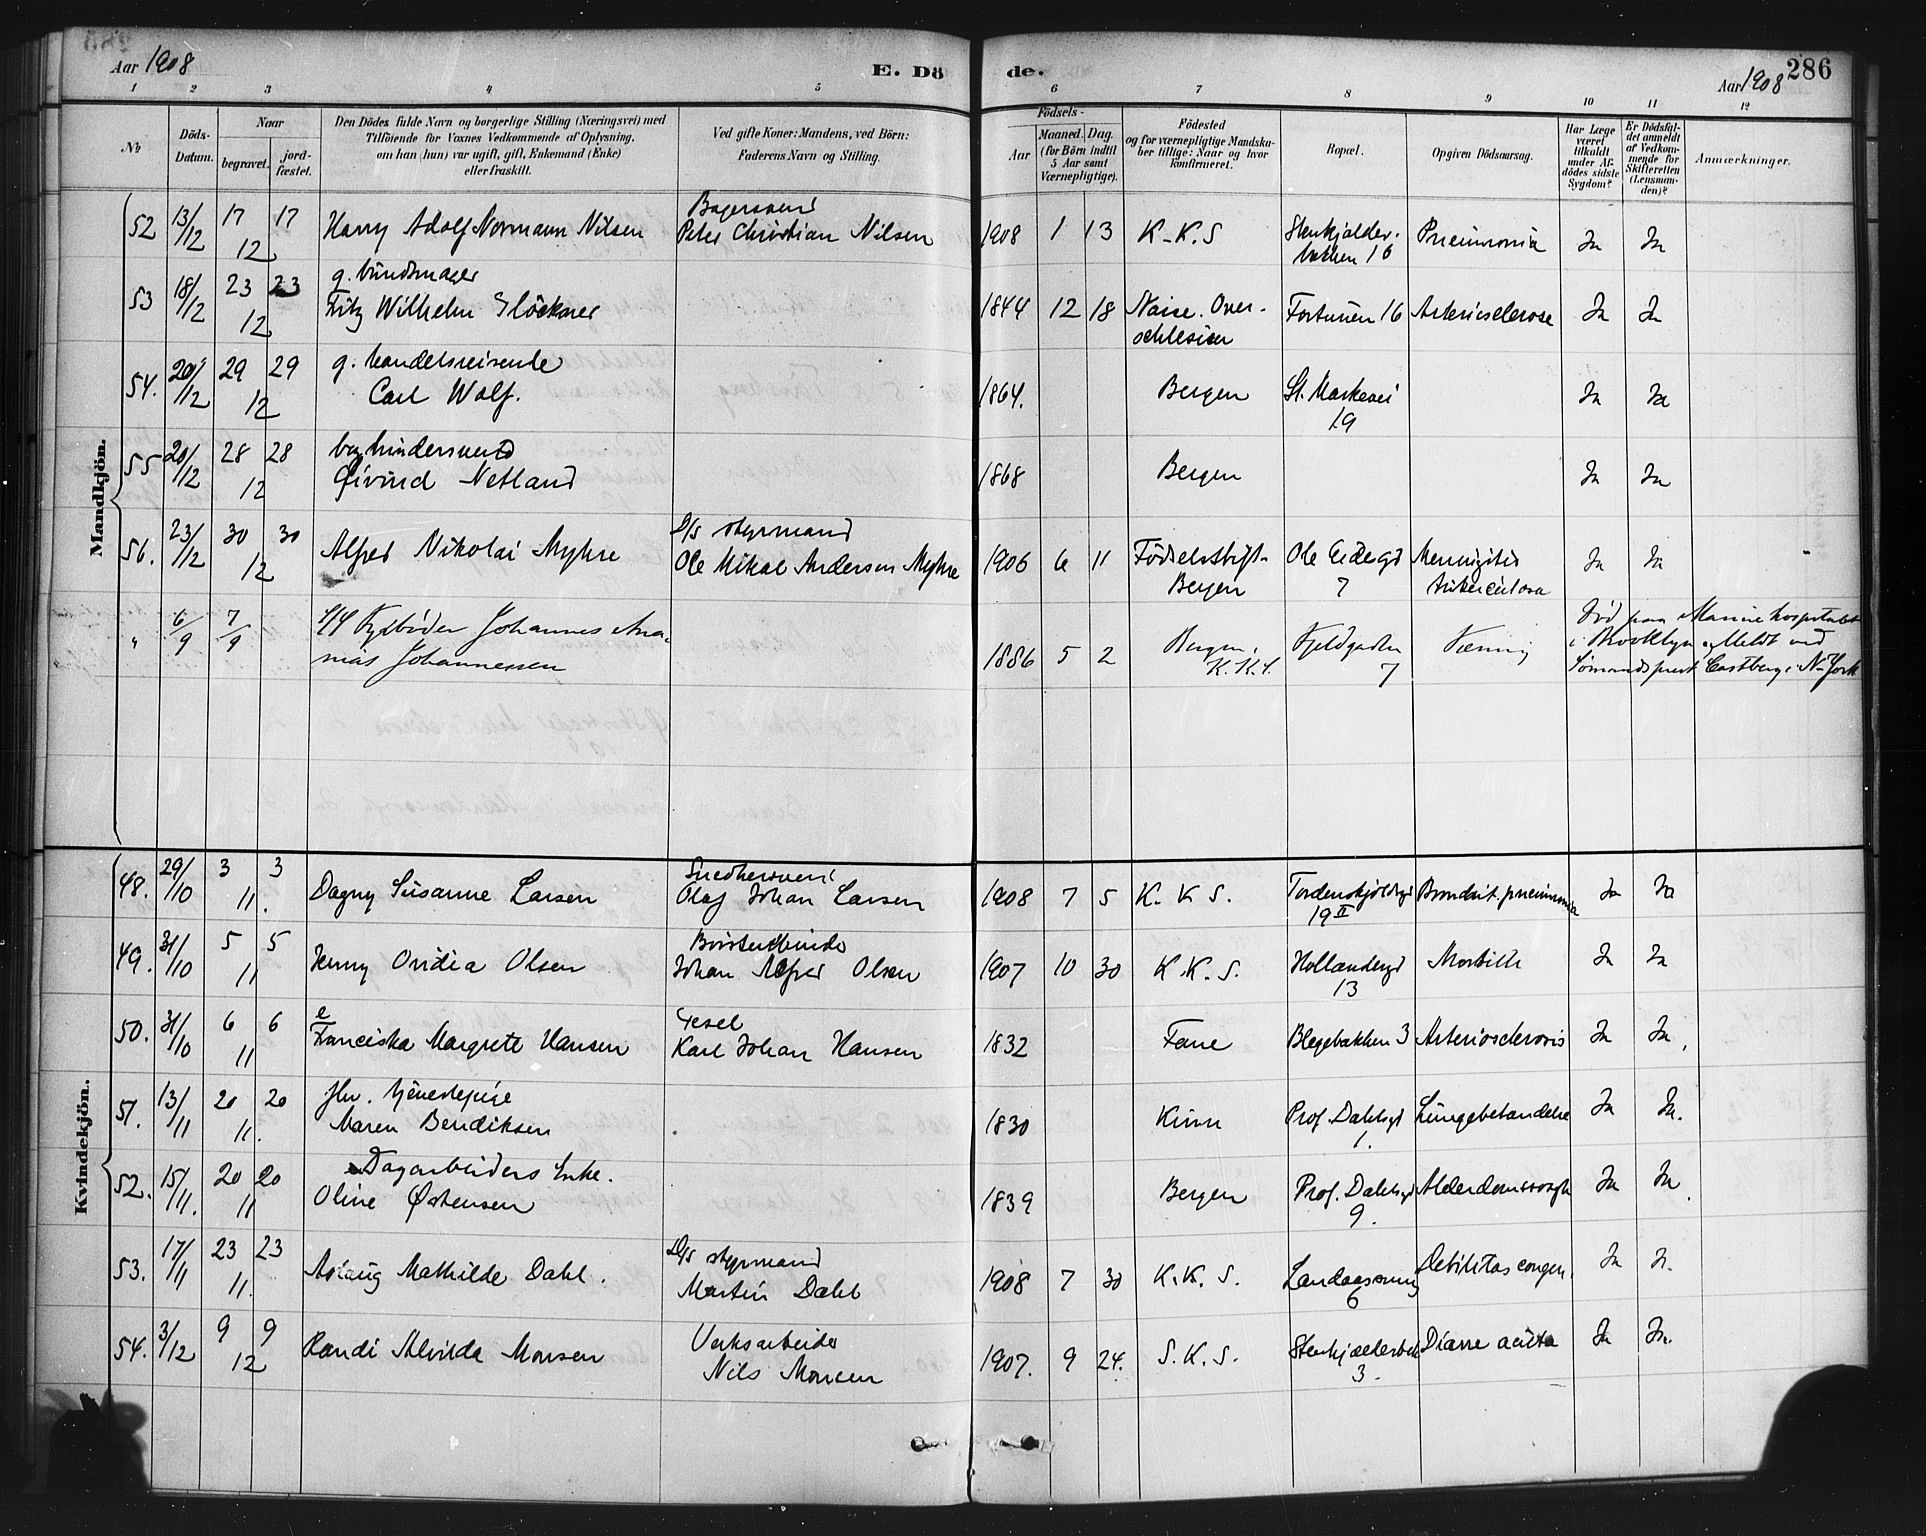 Aar 1908
E. Dö
de.
286
Aar 1908
1 2 3 4 5 6 7 8 9 10 11 12
No
Döds-
Datum.
Naar
begravet.
jord-
fæstet.
Den Dödes fulde Navn og borgerlige Stilling (Næringsvei) med
Tilföiende for Voxnes Vedkommende af Oplysning,
om han (hun) var ugift, gift, Enkemand (Enke)
eller fraskilt.
Ved gifte Koner: Mandens, ved Börn:
Faderens Navn og Stilling.
Födsels-
Aar
Maaned. Dag.
(for Börn indtil
5 Aar samt
Værnepligtige).
Födested
og for værnepligtige Mandska-
ber tillige: Naar og hvor
konfirmeret.
Bopæl.
Opgiven Dödsaarsag.
Har Læge
været
tilkaldt
under Af-
dödes sidste
Sygdom?
Er Dödsfal-
det anmeldt
af Vedkom-
mende for
Skifteretten
(Lensman-
den)?
Anmærkninger.
Mandkjön.
Bagersvend
52 13/12 17 17 Harry Adolf Normann Nilsen Peter Christian Nilsen 1908 1 13 K.K.S Stenkjelder- Pneumonia Ja Ja
12 bakken 16
g. bundtmager
53 18/12 23 23 Fritz Wilhelm Glöckner 1844 12 18 Naise. Over- Fortunen 16 Arteriosclerose Ja Ja
12 schlesien
g. handelsreisende
54. 20/12 29 29 Carl Wolf. 1864. Bergen St. Markevei Ja Ja
12 19
bogbindersvend
55 20/12 28 28 Øivind Netland 1868 Bergen Ja Ja
12
D/s styrmand
56. 23/12 30 30 Alfred Nikolai Myhre Ole Mikal Andersen Myhre 1906 6 11 Födselsstift- Ole Eidesgd Meningitis Ja Ja
12 Bergen 7 tuberculosa
" 6/9 7/9 Fyrbøder Johannes Ana-
nias Johannessen 1886 5 2 Bergen, K.K.S. Fjeldgaden 7
Død paa Marinehospitalet
i Brooklyn. Meldt ved
Sømandsprest Castberg i N-York
Kvindekjön.
Snedkersvend
48. 29/10 3 3 Dagny Susanne Larsen Olaf Johan Larsen 1908 7 5 K. K S. Tordenskjoldsgd Bronchit. pneumonia Ja Ja
11. 19 II
Børstenbinder
49. 31/10 5 5 Jenny Ovidia Olsen Johan Alfred Olsen 1907 10 30 K.K.S. Hollendergd Morbilli Ja Ja
11 13
e
50. 31/10 6 6 Franciska Margrete Hansen Karl Johan Hansen 1832 Fane Blegebakken 3 Arteriosclerosis Ja Ja.
11
tjenestepige
51. 13/11 20 20 Maren Bendiksen 1830 Kinn Prof. Dahlsgd Lungebetændelse Ja Ja.
11. 1.
Dagarbeiders Enke.
52. 15/11. 20 20 Oline Østensen 1839 Bergen Prof. Dahlsgd Alderdomssvagh Ja Ja.
11 9.
D/s styrmand
53. 17/11 23 23 Aslaug Mathilde Dahl. Martin Dahl 1908 7 30 K.K. S. Debilitas congen. Ja Ja.
11. 6
Verksarbeider
54. 3/12 9 9 Randi Alvilda Monsen Nils Monsen 1907. 9 24. S.K.S. Stenkjælderbk Diarre acuta Ja Ja.
12 3.